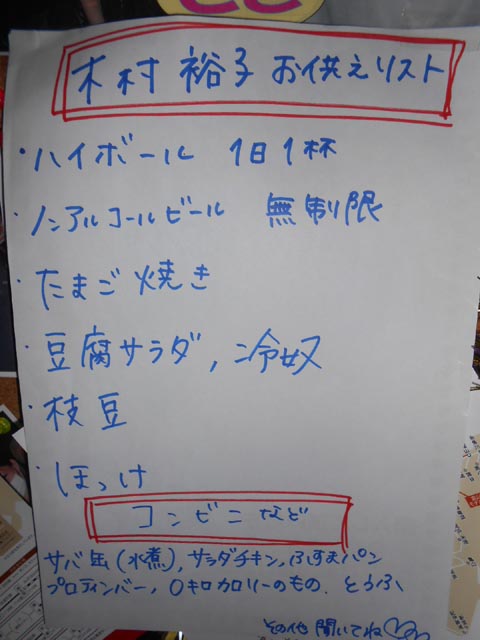 木村 裕子 お供えリスト
・ハイボール 1日1杯
・ノンアルコールビール 無制限
・たまご焼き
・豆腐サラダ, 冷奴
・枝豆
・ほっけ
コンビニなど
サバ缶(水煮), サラダチキン, ふすまパン
プロティンバー, 0キロカロリーのもの. とうふ
その他 聞いてね♡